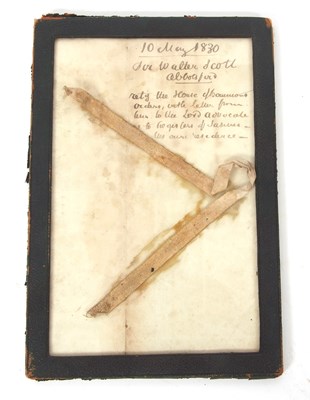 10 May 1830
Sir Walter Scott
Abbotsford
the House of
orders, with letter from
him to the Lord Advocate
as to Registers of Sasines
his own residence